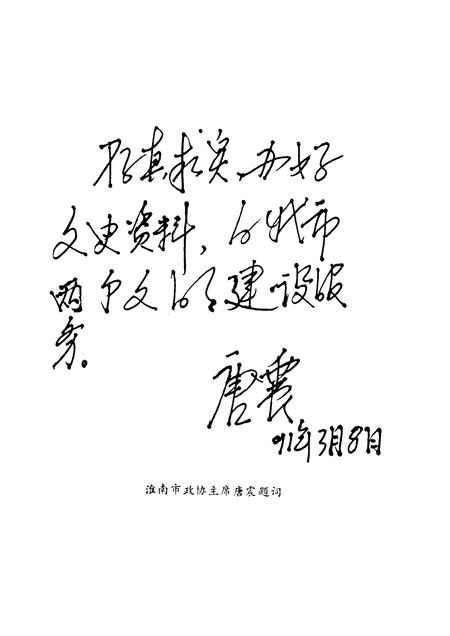 存真求实,办好
文史资料,为我市
两个文明建设服
务。
唐震
91年3月8日
淮南市政协主席唐震题词